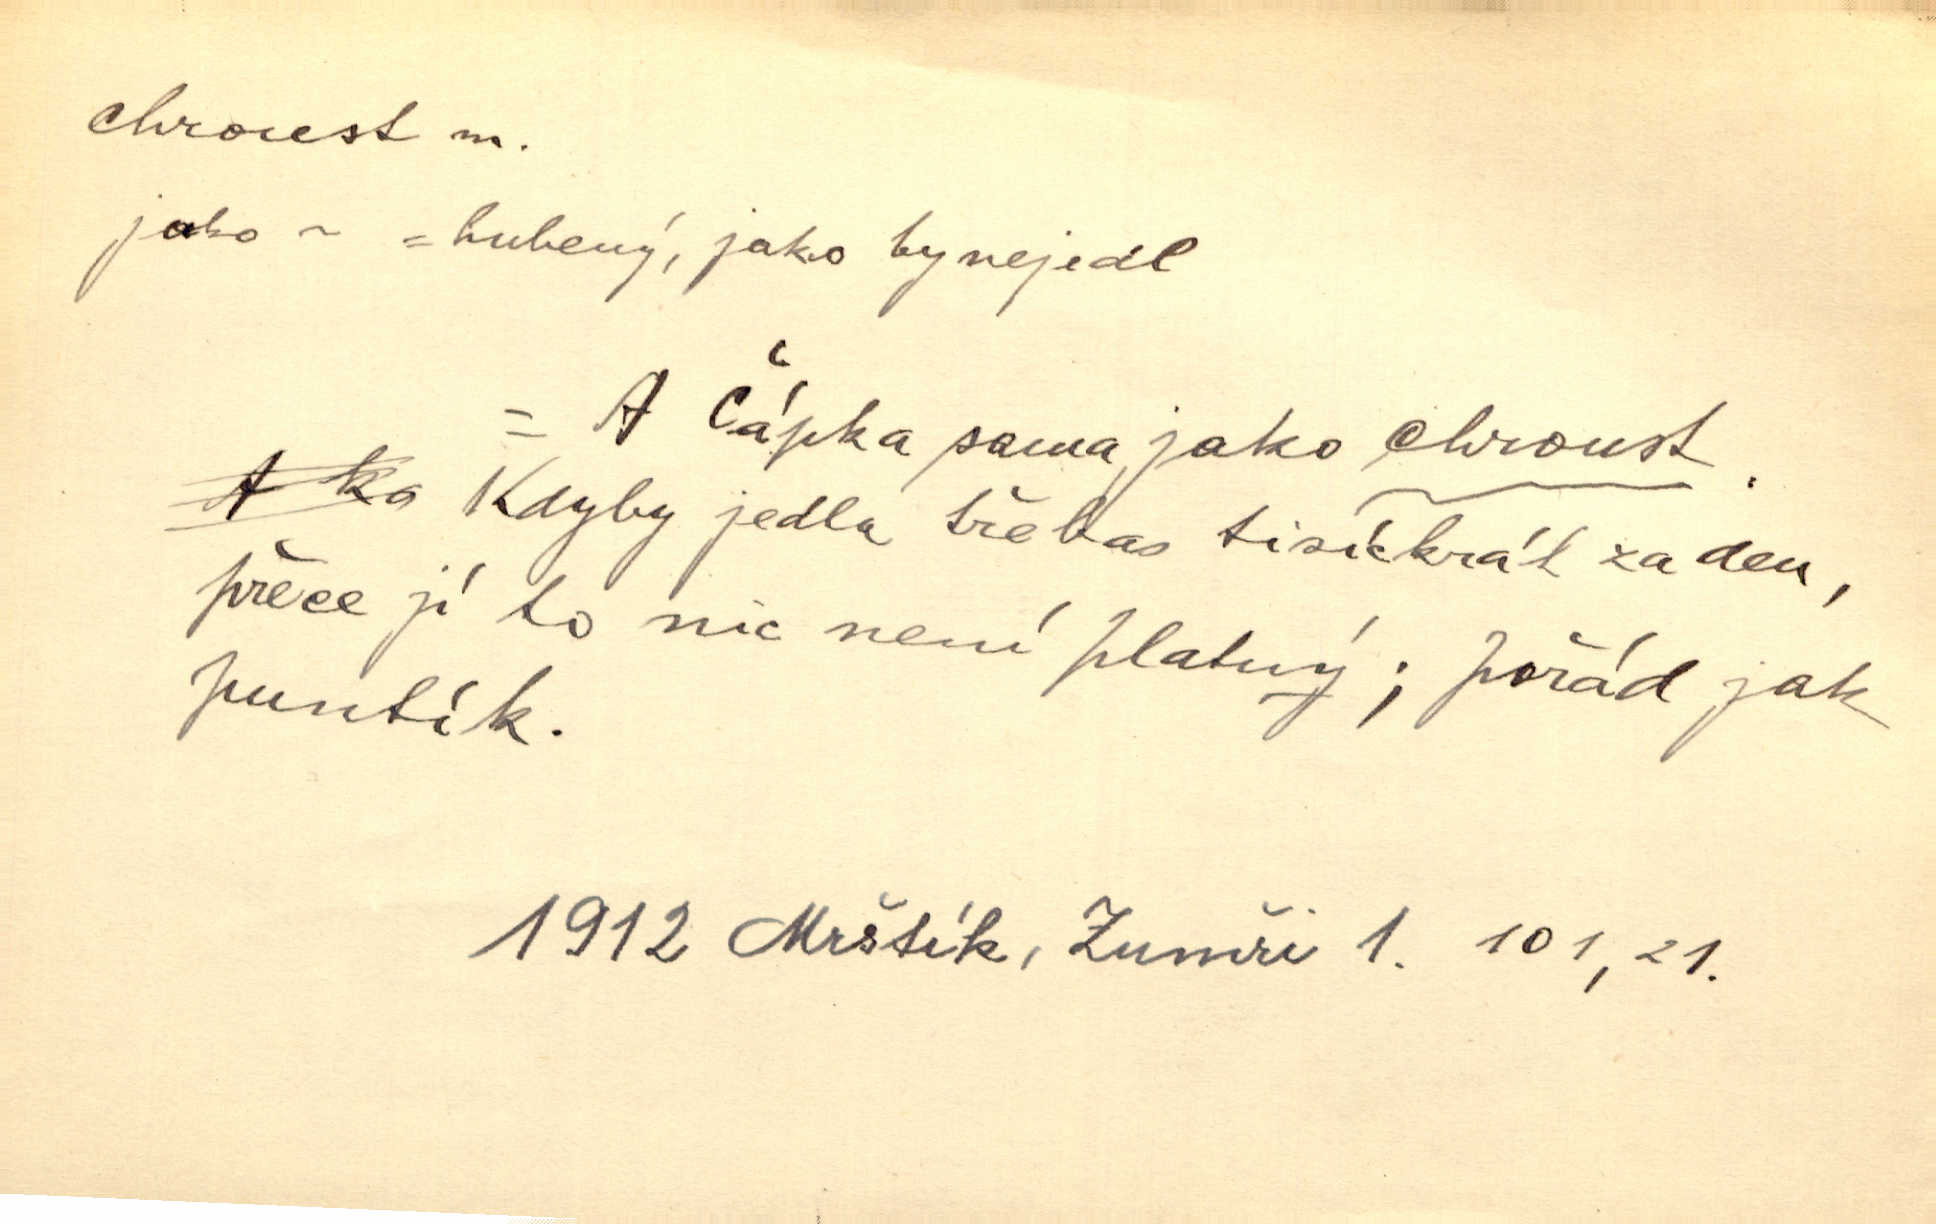 chroust m.
jako ~ = hubený, jako by nejedl
= A Čápka sama jako chroust.
A ka Kdyby jedla třebas tisíckrát za den,
přece jí to nic není platný; pořád jak
puntík.
1912 Mrštík, Zumři 1. 101, 21.